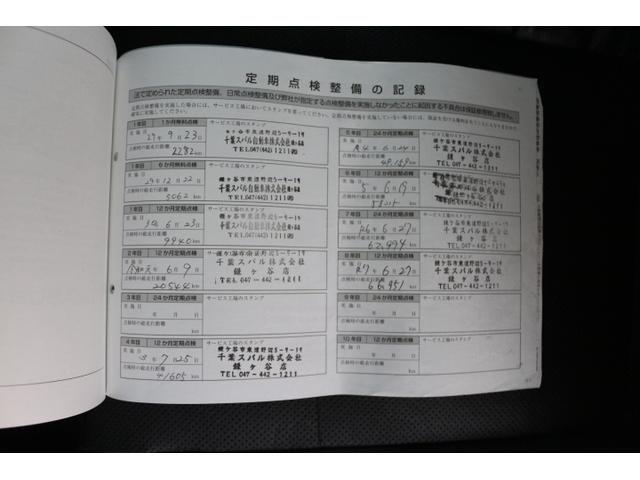 定期点検整備の記録
法で定められた定期点検整備、日常点検整備及び弊社が指定する点検整備を実施しなかったことに起因する不具合は保証修理致しません。
1年目 1か月無料点検 サービス工場のスタンプ
実施日 29年9月23日
点検時の総走行距離 2282km
鎌ヶ谷市東道野辺5-9-19
千葉スバル自動車株式会社
TEL.047(442)1211
1年目 6か月無料点検 サービス工場のスタンプ
実施日 29年12月22日
点検時の総走行距離 5062km
鎌ヶ谷市東道野辺5-9-19
千葉スバル自動車株式会社
TEL.047(442)1211
1年目 12か月定期点検 サービス工場のスタンプ
実施日 30年6月23日
点検時の総走行距離 9940km
鎌ヶ谷市東道野辺5-9-19
千葉スバル自動車株式会社
TEL.047(442)1211
2年目 12か月定期点検 サービス工場のスタンプ
実施日 6月9日
点検時の総走行距離 20544km
千葉スバル株式会社
鎌ヶ谷店
TEL 047-442-1211
3年目 24か月定期点検 サービス工場のスタンプ
実施日 年 月 日
点検時の総走行距離 km
4年目 12か月定期点検 サービス工場のスタンプ
実施日 3年7月25日
点検時の総走行距離 41605km
鎌ケ谷市東道野辺5-9-19
千葉スバル株式会社
鎌ケ谷店
TEL 047-442-1211
5年目 24か月定期点検 サービス工場のスタンプ
実施日 R4年6月24日
点検時の総走行距離 48,159km
鎌ケ谷市東道野辺5-9-19
千葉スバル株式会社
鎌ケ谷店
TEL 047-442-1211
6年目 12か月定期点検 サービス工場のスタンプ
実施日 5年6月19日
点検時の総走行距離 km
7年目 24か月定期点検 サービス工場のスタンプ
実施日 R6年6月27日
点検時の総走行距離 62,994km
鎌ケ谷市東道野辺5-9-19
千葉スバル株式会社
鎌ケ谷店
TEL 047-442-1211
8年目 12か月定期点検 サービス工場のスタンプ
実施日 R7年6月27日
点検時の総走行距離 66,951km
鎌ケ谷市東道野辺5-9-19
千葉スバル株式会社
鎌ケ谷店
TEL 047-442-1211
9年目 24か月定期点検 サービス工場のスタンプ
実施日 年 月 日
点検時の総走行距離 km
10年目 12か月定期点検 サービス工場のスタンプ
実施日 年 月 日
点検時の総走行距離 km